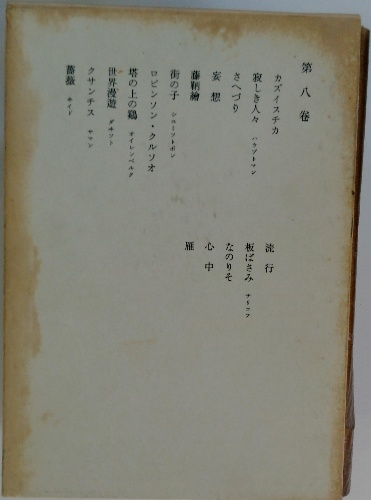 第八巻
カズイスチカ
寂しき人々 ハウプトマン
さへづり
妄想
藤鞆繪
街の子 シユミツトボン
ロビンソン・クルソオ
塔の上の鶏 オイレンベルク
世界漫遊 ダヰツト
クサンチス サマン
薔薇 ヰイド
流行
板ばさみ チリコフ
なのりそ
心中
雁